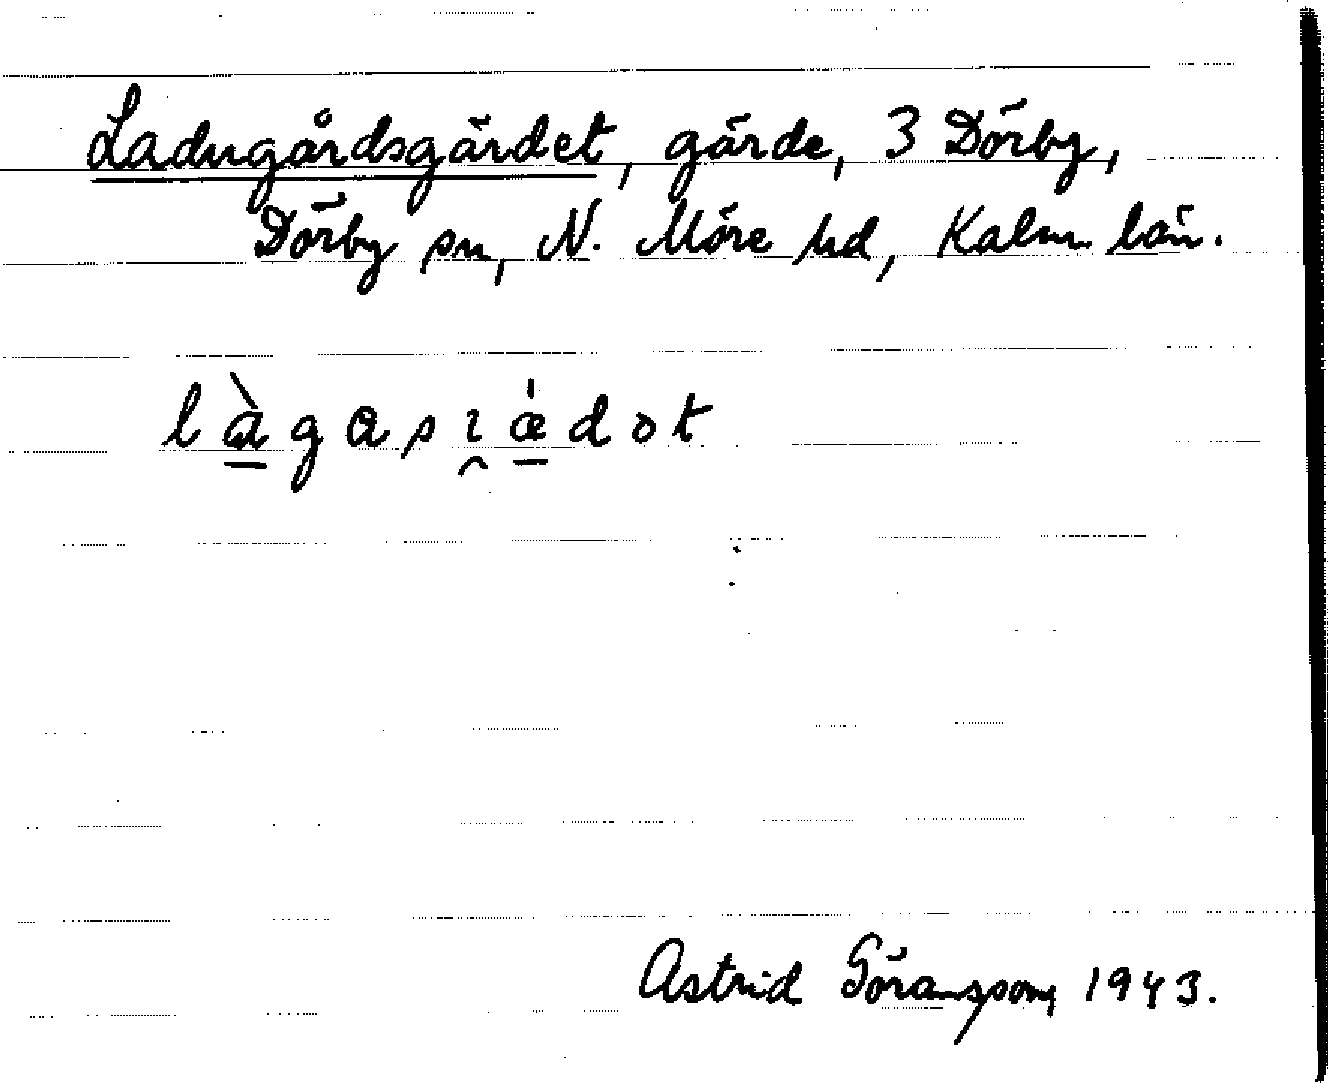 Ladugårdsgärdet, gärde, 3 Dörby,
Dörby sn, N. Möre hd, Kalm. län.
là̱gası̯ǽ̱dot
Astrid Göransson 1943.